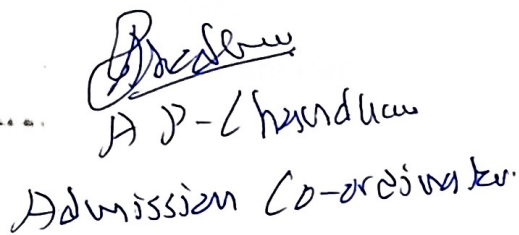 A P - Chandhau
Admission Co-ordinator.